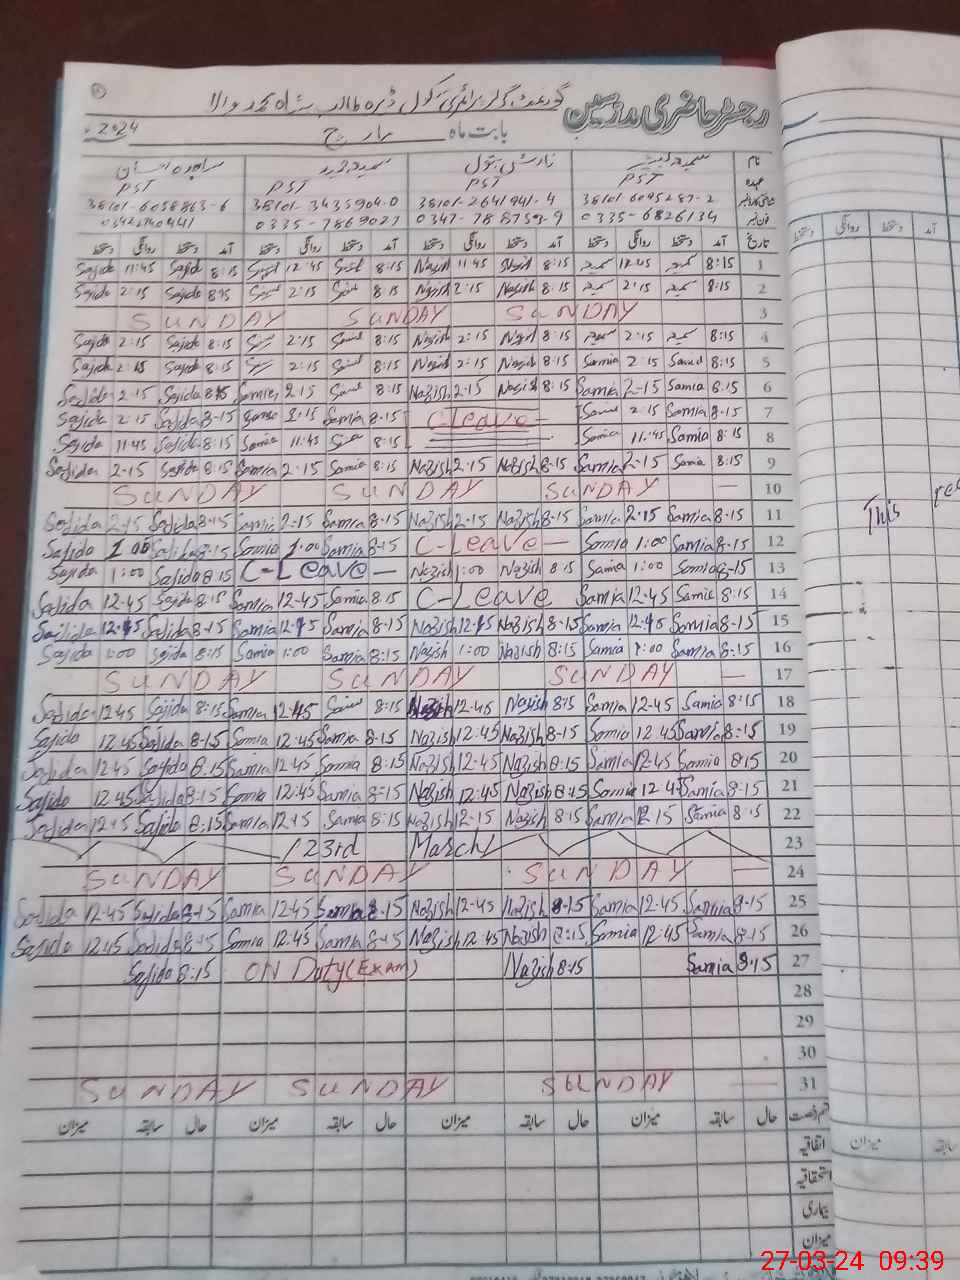 رجسٹر حاضری مدرسین گورنمنٹ گرلز پرائمری سکول ڈیرہ طالب شاہ محمد والا
بابت ماہ مارچ 2024ء
نام سمیعہ نازش بتول سمیعہ ساجدہ
عہدہ PST PST PST PST
38101-6095287-2 38101-2641941-4 38101-3435904-0 38101-6058863-6
فون نمبر 0335-6826134 0347-7887503-9 0335-7869027
تاریخ آمد دستخط روانگی دستخط آمد دستخط روانگی دستخط آمد دستخط روانگی دستخط آمد دستخط روانگی دستخط
1 8:15 سمیعہ 12:45 سمیعہ 8:15 Nazish 11:45 Nazish 8:15 12:45 8:15 Sajida 11:45 Sajida
2 8:15 سمیعہ 2:15 سمیعہ 8:15 Nazish 2:15 Nazish 8:15 2:15 8:15 Sajida 2:15 Sajida
3 SUNDAY SUNDAY SUNDAY
4 8:15 سمیعہ 2:15 سمیعہ 8:15 Nazish 2:15 Nazish 8:15 2:15 8:15 Sajida 2:15 Sajida
5 8:15 2:15 Samia 8:15 Nazish 2:15 Nazish 8:15 2:15 8:15 Sajida 2:15 Sajida
6 8:15 Samia 2-15 Samia 8:15 Nazish 2-15 Nazish 8:15 2:15 Samia 8:15 Sajida 2:15 Sajida
7 8:15 Samia 2:15 C-Leave 8-15 Samia 2:15 8-15 Sajida 2:15 Sajida
8 8:15 Samia 11:45 Samia 8:15 11:45 Samia 8:15 Sajida 11:45 Sajida
9 8:15 Samia 2-15 Samia 8-15 Nazish 2-15 Nazish 8:15 Samia 2-15 Samia 8:15 Sajida 2-15 Sajida
10 SUNDAY SUNDAY SUNDAY
11 8-15 Samia 2-15 Samia 8-15 Nazish 2-15 Nazish 8-15 Samia 2-15 Samia 8-15 Sajida 2-15 Sajida
12 8-15 Samia 1:00 Samia C-Leave 8-15 Samia 1:00 Samia 8-15 Sajida 1:00 Sajida
13 8-15 Samia 1:00 Samia 8:15 Nazish 1:00 Nazish C-Leave 8:15 Sajida 1:00 Sajida
14 8:15 Samia 12-45 Samia C-Leave 8:15 Samia 12-45 Samia 8:15 Sajida 12-45 Sajida
15 8-15 Samia 12-45 Samia 8-15 Nazish 12-45 Nazish 8-15 Samia 12-45 Samia 8-15 Sajida 12-45 Sajida
16 8:15 Samia 1:00 Samia 8:15 Nazish 1:00 Nazish 8:15 Samia 1:00 Samia 8:15 Sajida 1:00 Sajida
17 SUNDAY SUNDAY SUNDAY
18 8:15 Samia 12-45 Samia 8:15 Nazish 12-45 Nazish 8:15 12:45 Samia 8:15 Sajida 12:45 Sajida
19 8:15 Samia 12:45 Samia 8-15 Nazish 12:45 Nazish 8-15 Samia 12:45 Samia 8-15 Sajida 12:45 Sajida
20 8:15 Samia 12-45 Samia 8:15 Nazish 12-45 Nazish 8:15 Samia 12-45 Samia 8:15 Sajida 12-45 Sajida
21 8-15 Samia 12:45 Samia 8:15 Nazish 12:45 Nazish 8:15 Samia 12:45 Samia 8:15 Sajida 12:45 Sajida
22 8:15 Samia 12:15 Samia 8:15 Nazish 12-15 Nazish 8:15 Samia 12-15 Samia 8:15 Sajida 12-15 Sajida
23 23rd March
24 SUNDAY SUNDAY SUNDAY
25 8-15 Samia 12-45 Samia 8-15 Nazish 12-45 Nazish 8-15 Samia 12-45 Samia 8-15 Sajida 12-45 Sajida
26 8-15 Samia 12:45 Samia 8:15 Nazish 12:45 Nazish 8-15 Samia 12:45 Samia 8-15 Sajida 12:45 Sajida
27 8:15 Samia 8:15 Nazish ON Duty (Exam) 8:15 Sajida
28
29
30
31 SUNDAY SUNDAY SUNDAY
قسم رخصت حال سابقہ میزان حال سابقہ میزان حال سابقہ میزان حال سابقہ میزان
اتفاقیہ
استحقاقیہ
بیماری
میزان
دستخط روانگی دستخط آمد
This
سابقہ میزان
27-03-24 09:39